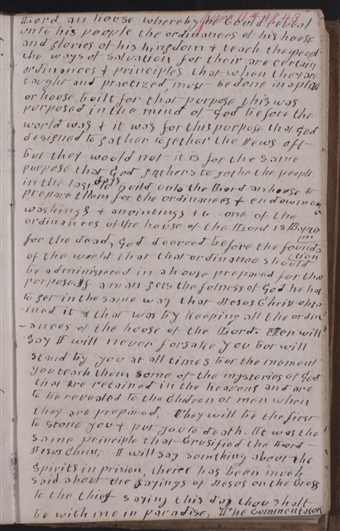 Lord an house whereby he could reveal
unto his people the ordinances of his house
and glories of his kingdom & teach the people
the ways of salvation for their are certain
ordinances & principles that when they are
taught and practized, must be done in a place
or house built for that purpose this was
purposed in the mind of God before the
world was & it was for this purpose that God
designed to gather together the Jews oft
but they would not it is for the same
purpose that God gathers togethe the people
in the last days to build unto the Lord an house to
prepare them for the ordinances & endowments
washings & anointings &c one of the
ordinances of the house of the Lord is Baptism
for the dead, God decreed before the foundation
of the world that that ordinance should
be administered in a house prepared for that
purpose. If a man gets the fulness of God he has
to get in the same way that Jesus Christ obta
-ined it & that was by keeping all the ordin
-ances of the house of the Lord. Men will
say I will never forsake you but will
stand by you at all times but the moment
you teach them some of the mysteries of God
that are retained in the heavens and are
to be revealed to the children of men when
they are prepared, They will be the first
to stone you & put you to death. It was the
same principle that crusified the Lord
Jesus Christ. I will say something about the
spirits in prision, theire has been much
said about the sayings of Jesus on the cross
to the thief saying this day thou shalt
be with me in paradise, The commentators